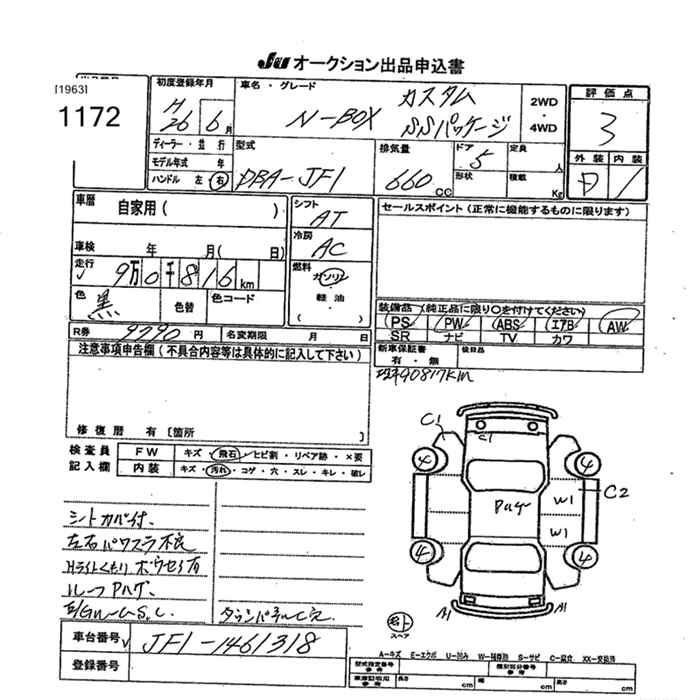 JU オークション出品申込書
[1963]
1172
初度登録年月
H26 6月
車名・グレード
N-BOX カスタム
SSパッケージ
2WD
・
4WD
評価点
3
外装 内装
1
ディーラー・並 行
モデル年式 年
ハンドル 左・右
型式
DBA-JF1
排気量
660 CC
ドア
5
形状
定員
人
積載
Kg
車歴
自家用( )
車検 年 月( 日)
走行
9万0千816km
色 黒
色替
色コード
シフト
AT
冷房
AC
燃料
ガソリン
軽油
・( )
セールスポイント(正常に機能するものに限ります)
装備品 (純正品に限り○を付けてください)
PS PW ABS エアB AW
SR ナビ TV カワ
R券 9790円
名変期限 月 日
新車保証書
有・無
後日品
90817Km
注意事項申告欄(不具合内容等は具体的に記入して下さい)
修復歴 有[箇所 ]
検査員
記入欄
FW キズ・飛石・ヒビ割・リペア跡・×要
内装 キズ・汚れ・コゲ・穴・スレ・キレ・破レ
シートカバー付.
左右パワスラ不良
Hライトくもり
ルーフPハゲ
C1
C1
4
4
W1
C2
W1
4
4
A1
A1
スペア
車台番号 JF1-1461318
登録番号
A-キズ E-エクボ U-凹み W-補修跡 S-サビ C-腐食 XX-交換済
型式指定番号
参考
類別区分番号
参考
車庫証明用
参考
長さ cm
幅 cm
高さ cm